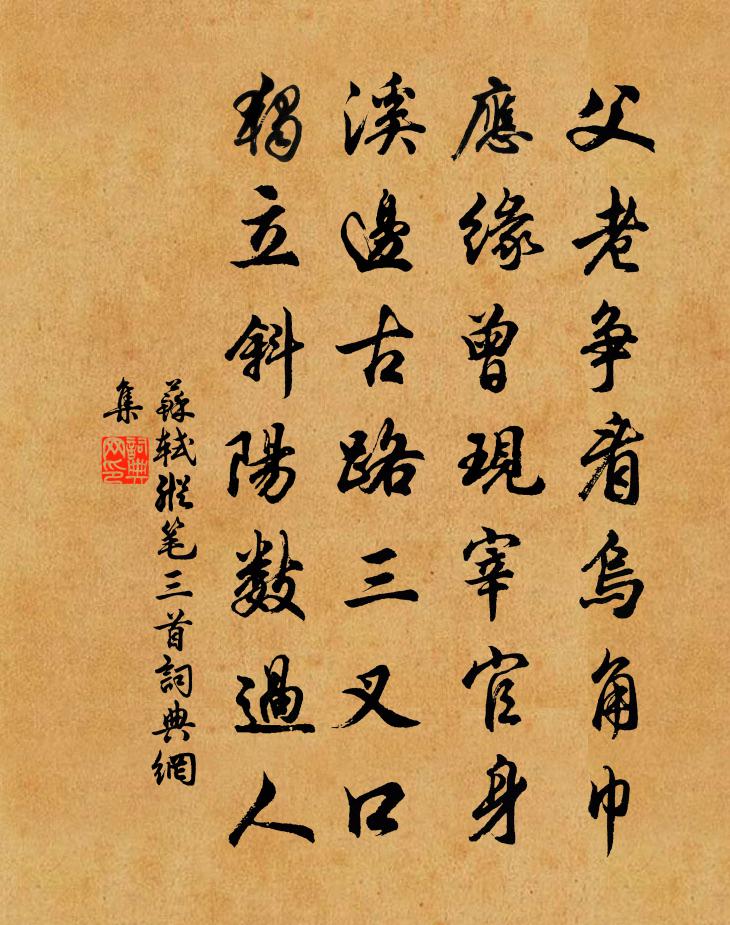 父老争看烏角巾
應緣曾現宰官身
溪邊古路三叉口
獨立斜陽數過人
蘇軾縱笔三首詞典網
集
詞典
网印